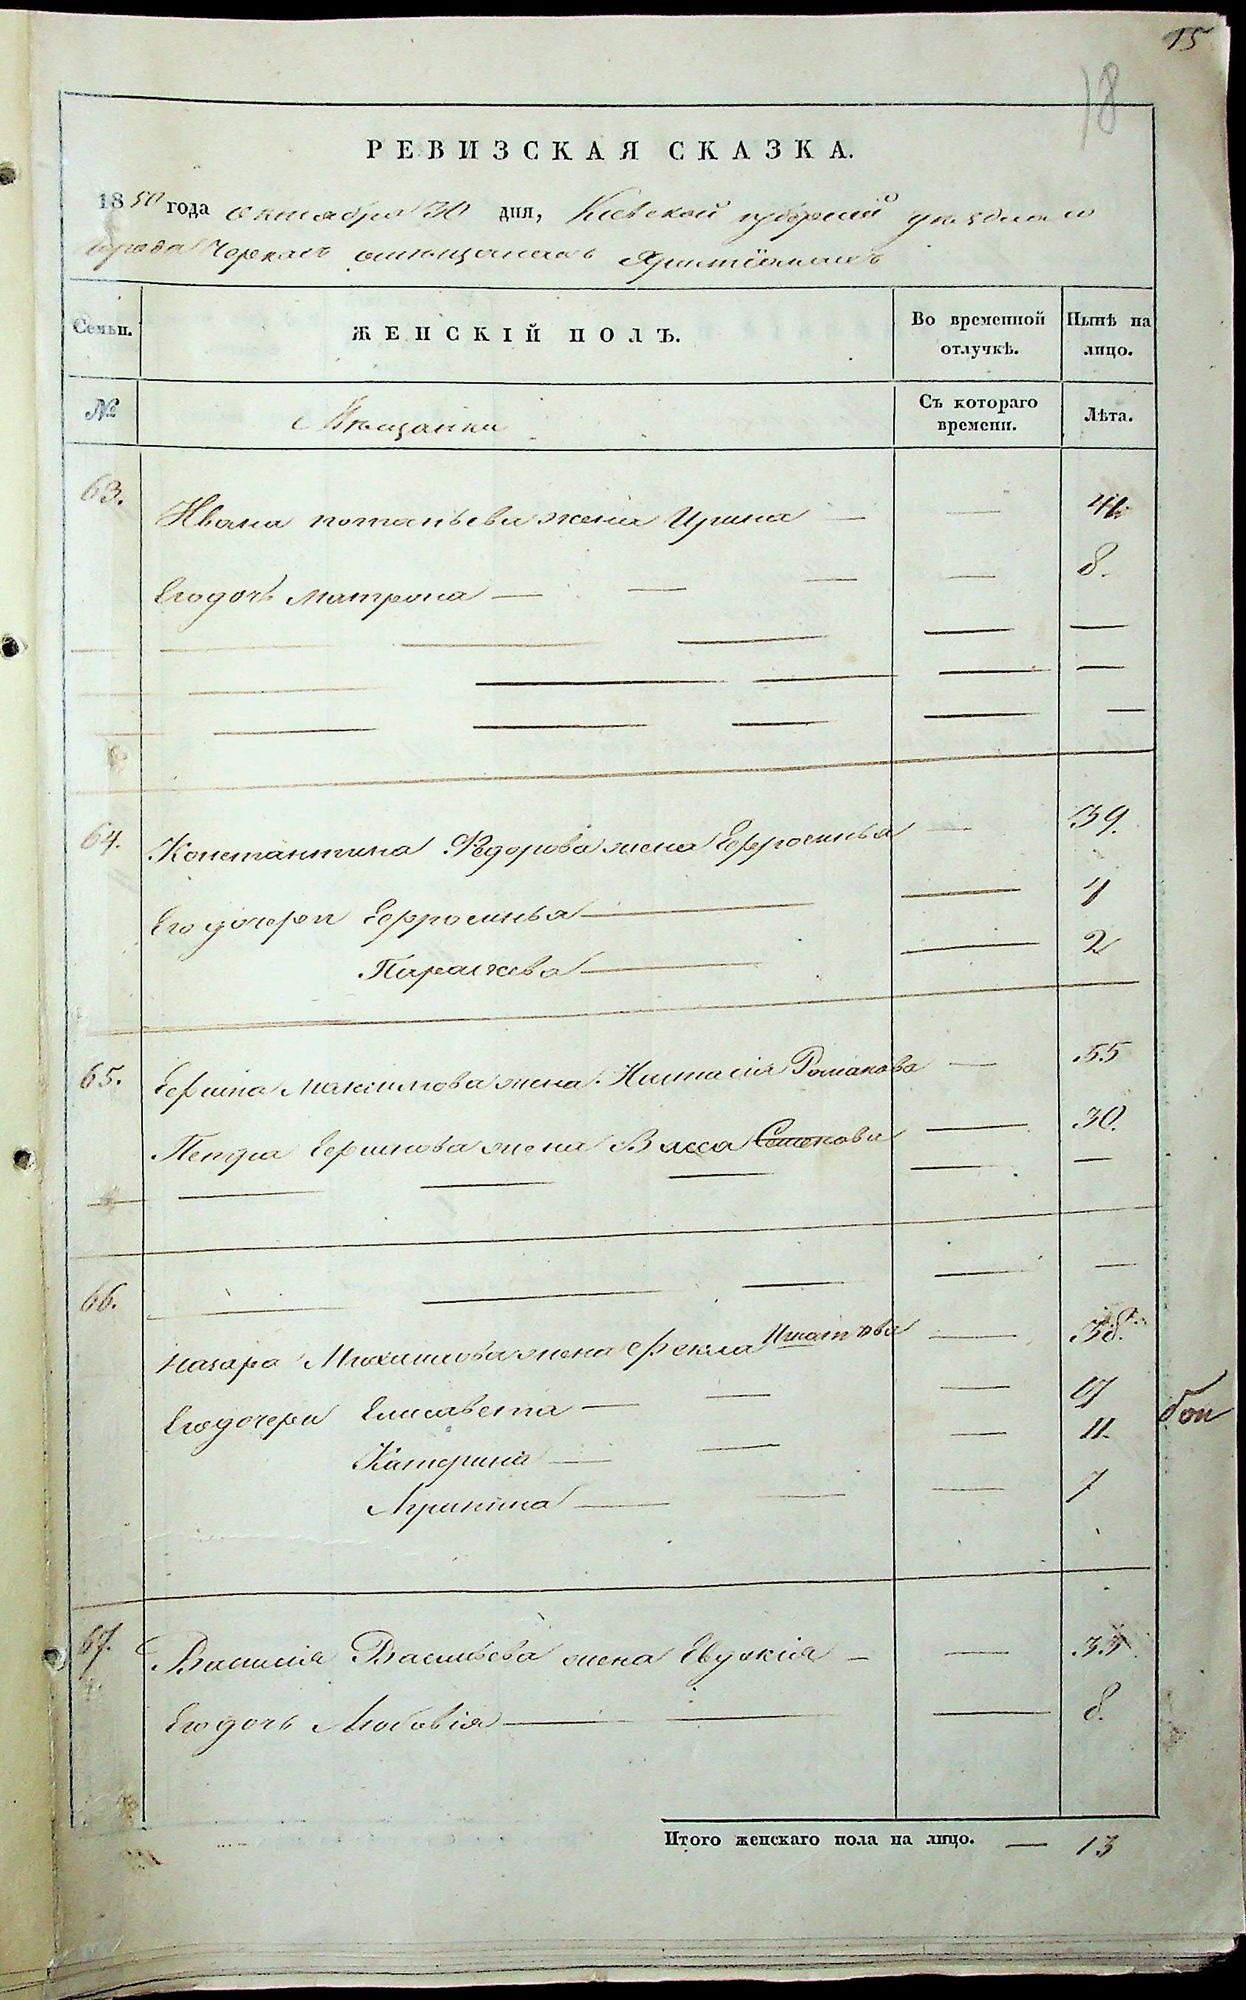 15
18
РЕВИЗСКАЯ СКАЗКА.
1850 года октября 30 дня, Кіевской губерніи уѣзднаго
города Черкасъ о мѣщанахъ христіанахъ
Семьи. ЖЕНСКІЙ ПОЛЪ. Во временной отлучкѣ. Нынѣ на лицо.
№ Мѣщанки Съ котораго времени. Лѣта.
63. Ивана Потапьева жена Ирина — — 41.
Его дочь Матрона — — — — 8.
64. Константина Федорова жена Ефросинья — 39.
Его дочери Ефросинья — — 4
Параскева — — 2
65. Ефима Максимова жена Настасія Романова — 55
Петра Ефимова жена Васса Семенова — 30.
66.
Назара жена Фекла Игнатова — 38.
Его дочери Елисавета — — — 17
Катерина — — — 11.
Агрипина — — — 7
67. Василія Васильева жена Евдокія — — 35.
Его дочь Любовія — — — 8.
Итого женскаго пола на лицо. — 13